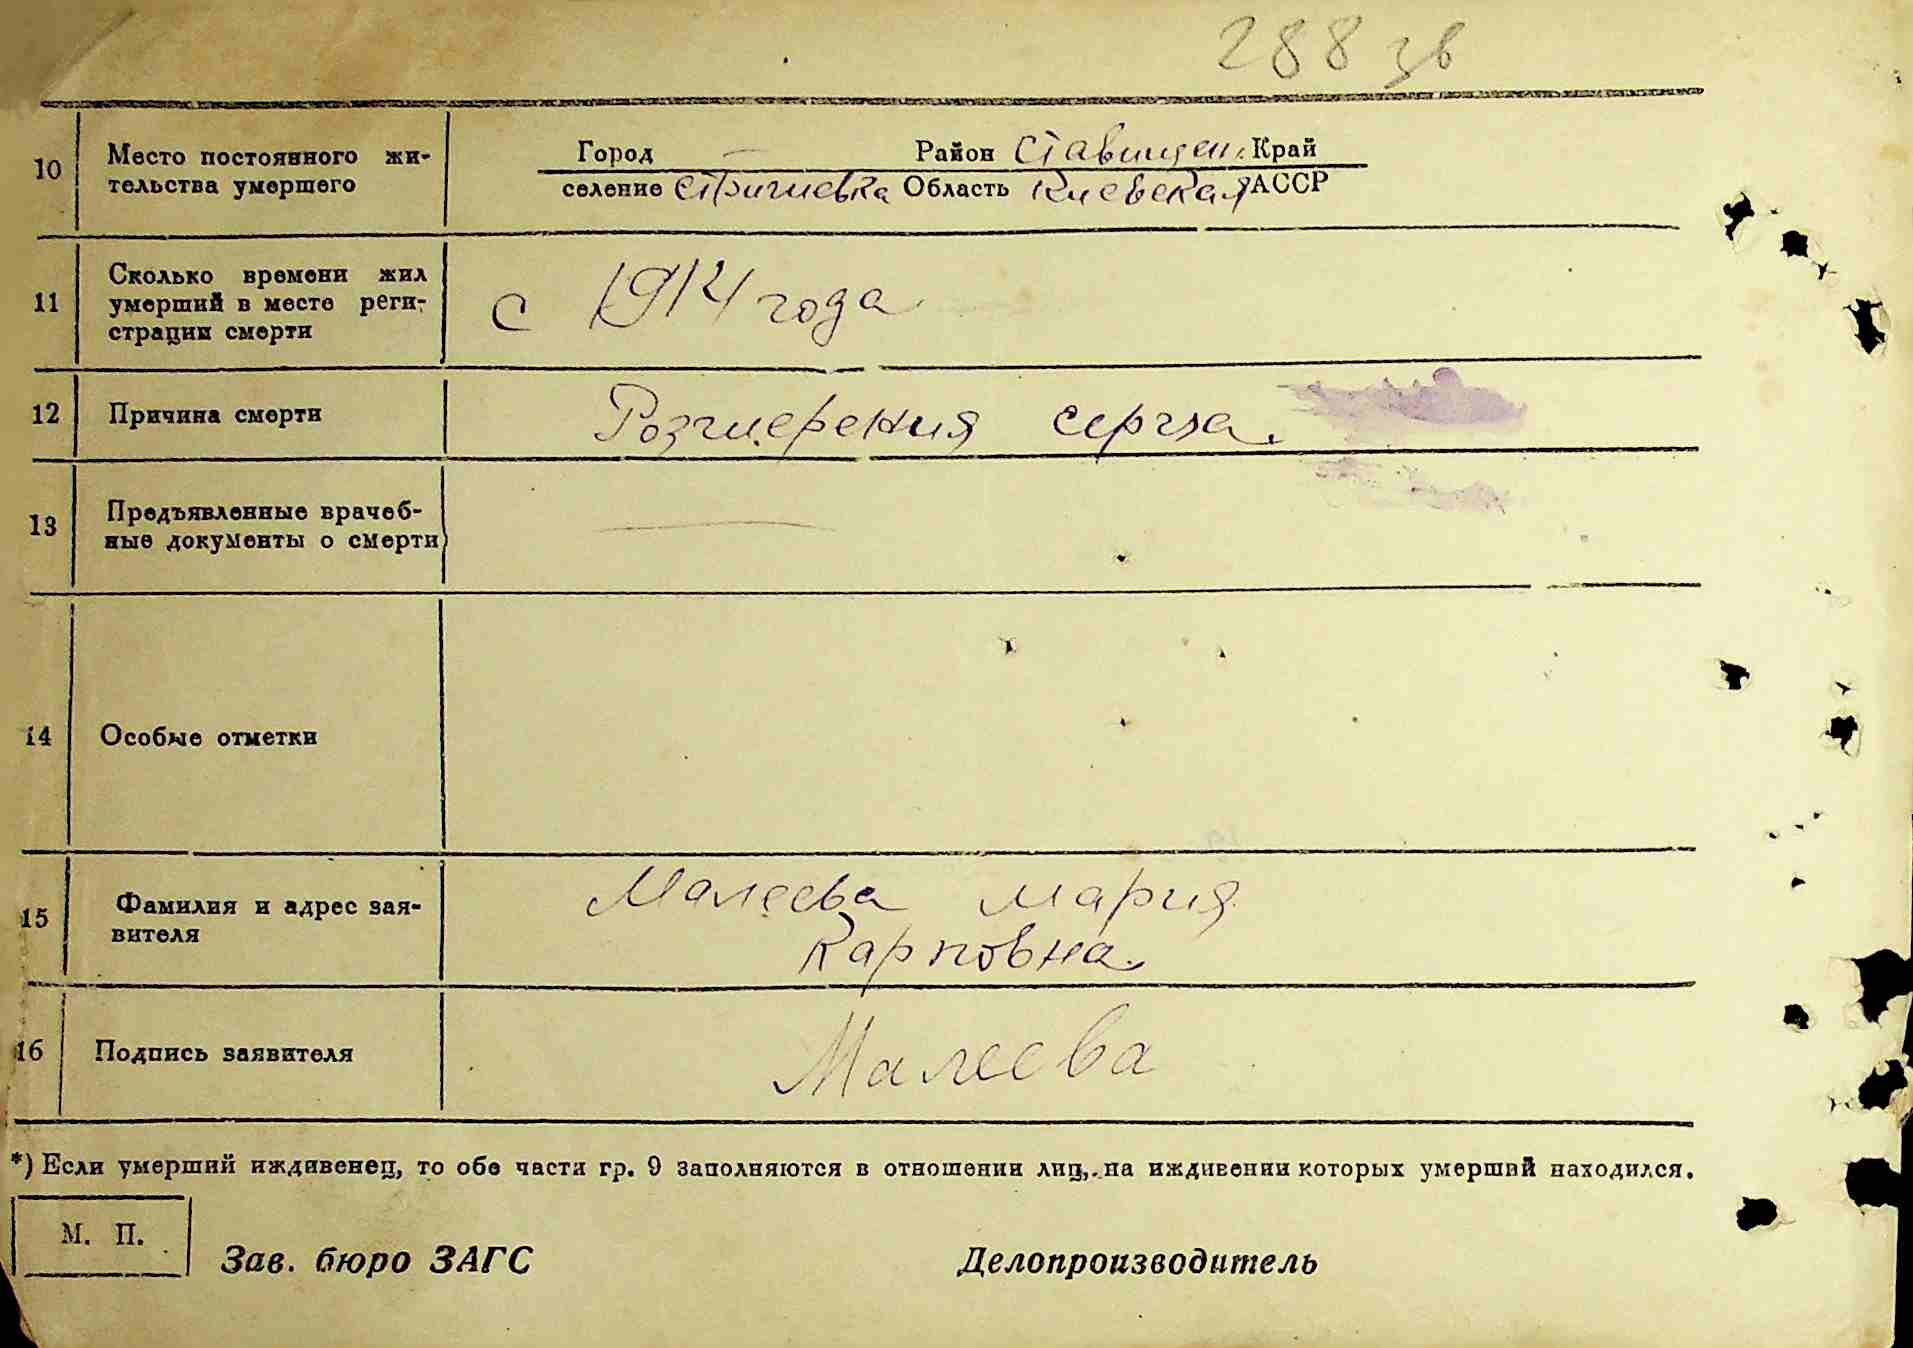 288 зв
10 Место постоянного жи-
тельства умершего
Город — Район Ставищен. Край
селение Стрижевка Область Киевская АССР
11 Сколько времени жил
умерший в месте реги-
страции смерти
с 1914 года
12 Причина смерти
Розширения серца.
13 Предъявленные врачеб-
ные документы о смерти
—
14 Особые отметки
15 Фамилия и адрес зая-
вителя
Малеева Мария
Карповна.
16 Подпись заявителя
Малеева
*) Если умерший иждивенец, то обе части гр. 9 заполняются в отношении лиц, на иждивении которых умерший находился.
М. П.
Зав. бюро ЗАГС Делопроизводитель